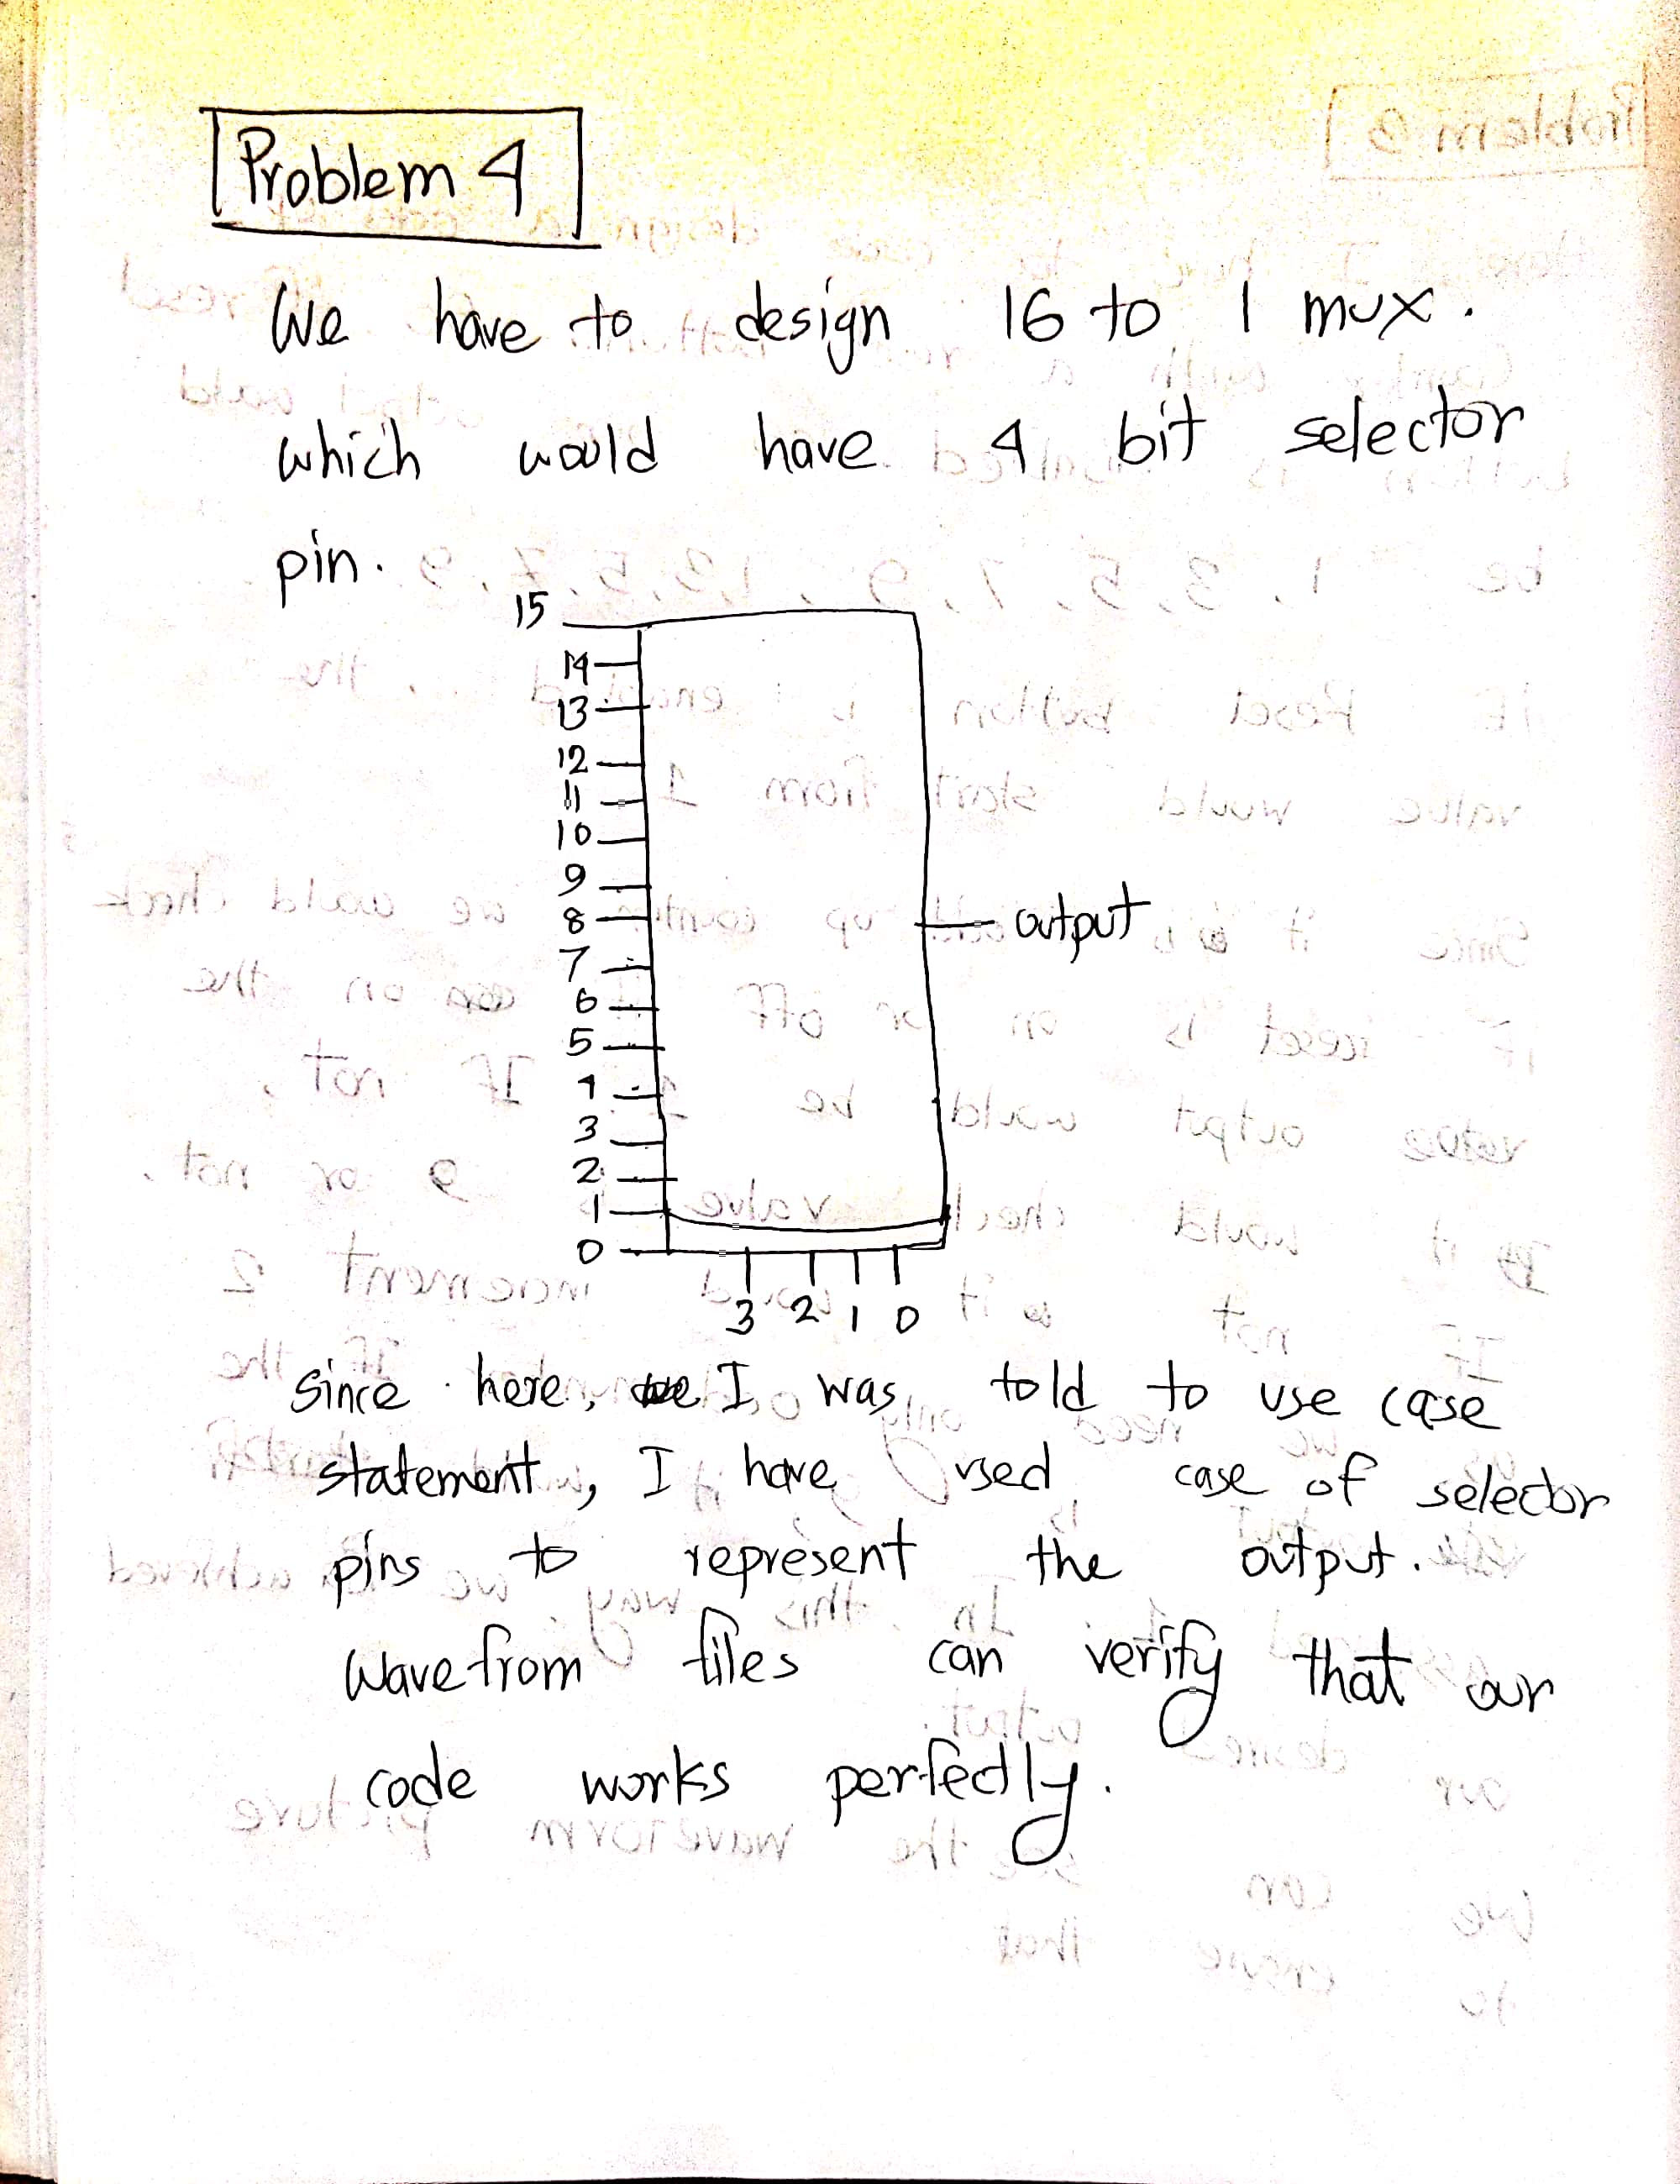 Problem 4
We have to design 16 to 1 mux.
which would have 4 bit selector
pin.
15
14
13
12
11
10
9
8
output
7
6
5
4
3
2
1
0
3 2 1 0
since here, I was told to use case
statement, I have used case of selector
pins to represent the output.
Wavefrom files can verify that our
code works perfectly.